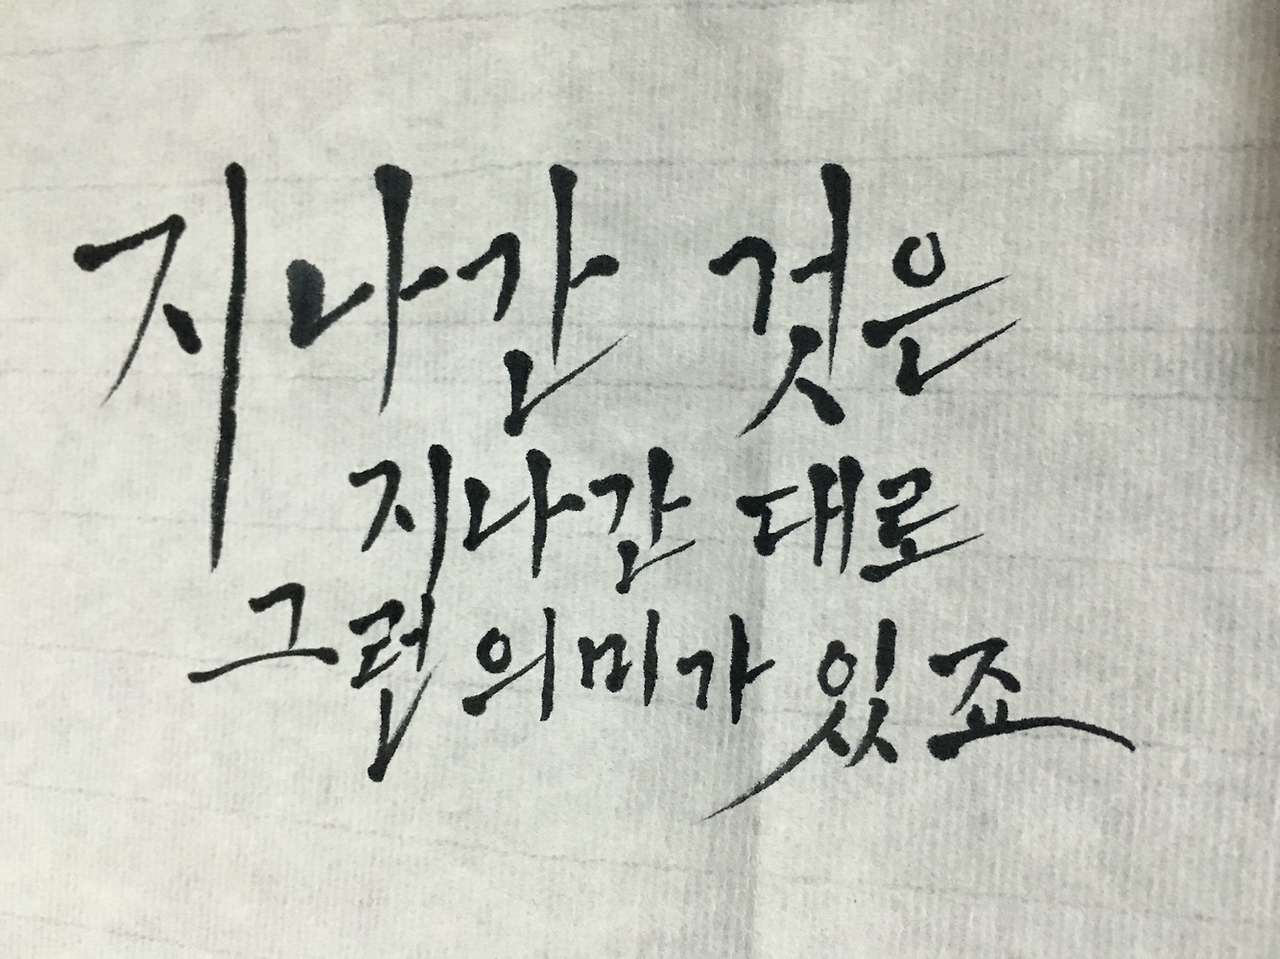 지나간 것은
지나간 대로
그런 의미가 있죠